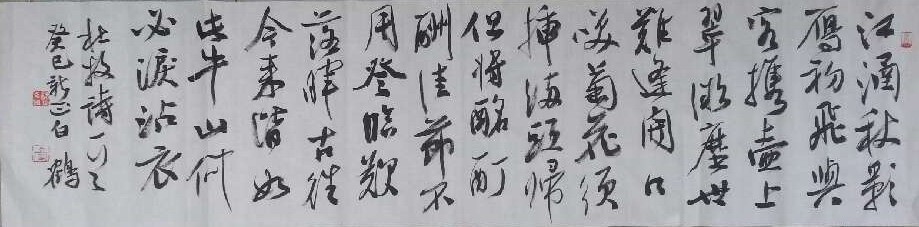 江涵秋影
鴈初飛與
客携壺上
翠微塵世
難逢開口
咲菊花須
插滿頭歸
但将酩酊
酬佳節不
用登臨歎
落暉古往
今来皆如
此牛山何
必淚沾衣
杜牧詩一首
癸巳新正白鶴